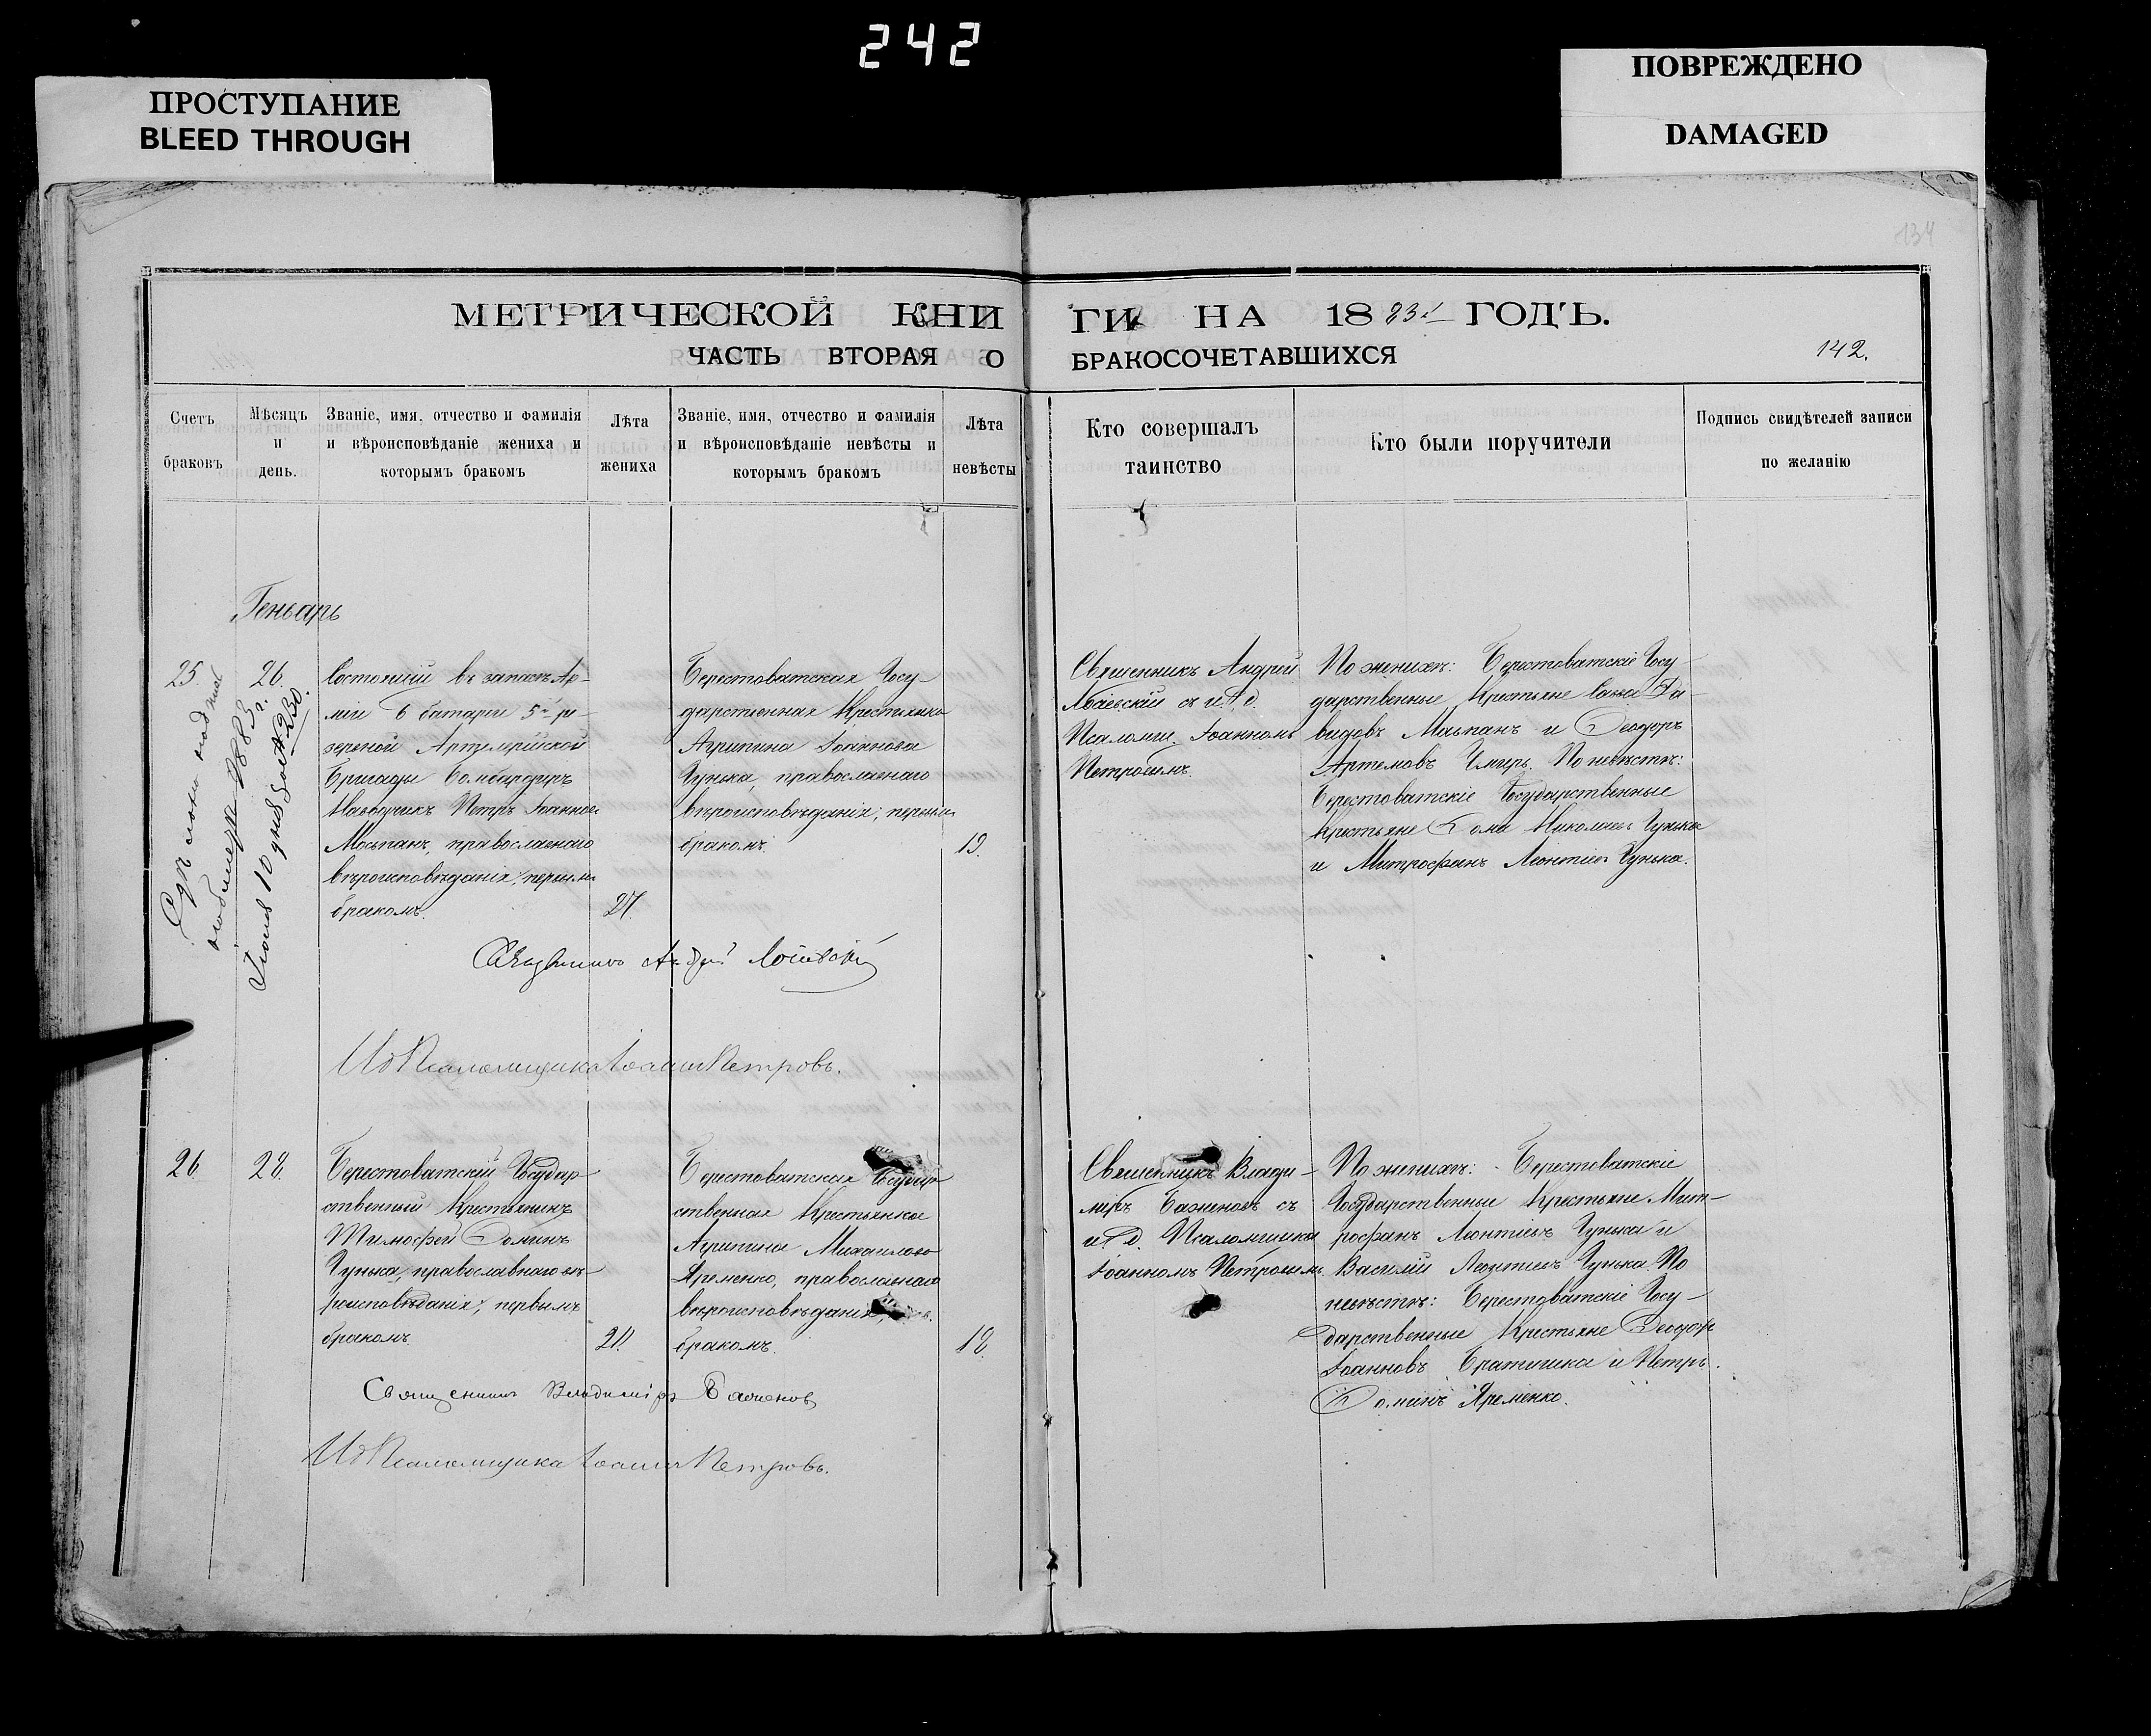 242
ПРОСТУПАНИЕ
BLEED THROUGH
ПОВРЕЖДЕНО
DAMAGED
134
МЕТРИЧЕСКОЙ КНИ
ГИ НА 1883й ГОДЪ.
ЧАСТЬ ВТОРАЯ О
БРАКОСОЧЕТАВШИХСЯ
142.
Счетъ
браковъ
Мѣсяцъ
и
день.
Званіе, имя, отчество и фамилія
и вѣроисповѣданіе жениха и
которымъ бракомъ
Лѣта
жениха
Званіе, имя, отчество и фамилія
и вѣроисповѣданіе невѣсты и
которымъ бракомъ
Лѣта
невѣсты
Кто совершалъ
таинство
Кто были поручители
Подпись свидѣтелей записи
по желанію
Геньарь
25.
26.
1883 г.
Іюля 10 дня за № 230.
Состоящій въ запасѣ Ар-
міи 6 батареи 5й ре-
зервной Артилерійской
Бригады Бомбардиръ
Наводчикъ Петръ Іоанновъ
Мосьпанъ, православнаго
вѣроисповѣданія, первымъ
бракомъ.
27.
Берестоватская Госу-
дарственная Крестьянка
Агрипина Іоаннова
Чунька, православнаго
вѣроисповѣданія, первымъ
бракомъ.
19.
Священникъ Андрей
съ и. д.
Псаломщ. Іоанномъ
Петровымъ.
По женихѣ: Берестоватскіе Госу-
дарственные Крестьяне Савва Да-
видовъ Мосьпанъ и Ѳеодоръ
Артемовъ Чмирь. По невѣстѣ:
Берестоватскіе Государственные
Крестьяне Ѳома Николаевъ Чунька
и Митрофанъ Леонтіевъ Чунька.
Священникъ Андрей
Ид Псаломщика Іоаннъ Петровъ.
26.
28.
Берестоватскій Государ-
ственный Крестьянинъ
Тимофей Ѳоминъ
Чунька, православнаго вѣ-
роисповѣданія, первымъ
бракомъ.
21.
Берестоватская Государ-
ственная Крестьянка
Агрипина Михаилова
Яременко, православнаго
вѣроисповѣданія,
бракомъ.
18.
Священникъ Влади-
миръ Баженовъ съ
и. д. Псаломщика
Іоанномъ Петровымъ.
По женихѣ: Берестоватскіе
Государственные Крестьяне Мит-
рофанъ Леонтіевъ Чунька и
Василій Леонтіевъ Чунька. По
невѣстѣ: Берестоватскіе Госу-
дарственные Крестьяне Ѳеодоръ
Іоанновъ Братишка и Петръ
Ѳоминъ Яременко.
Священникъ Владиміръ Баженовъ
Ид Псаломщика Іоаннъ Петровъ.